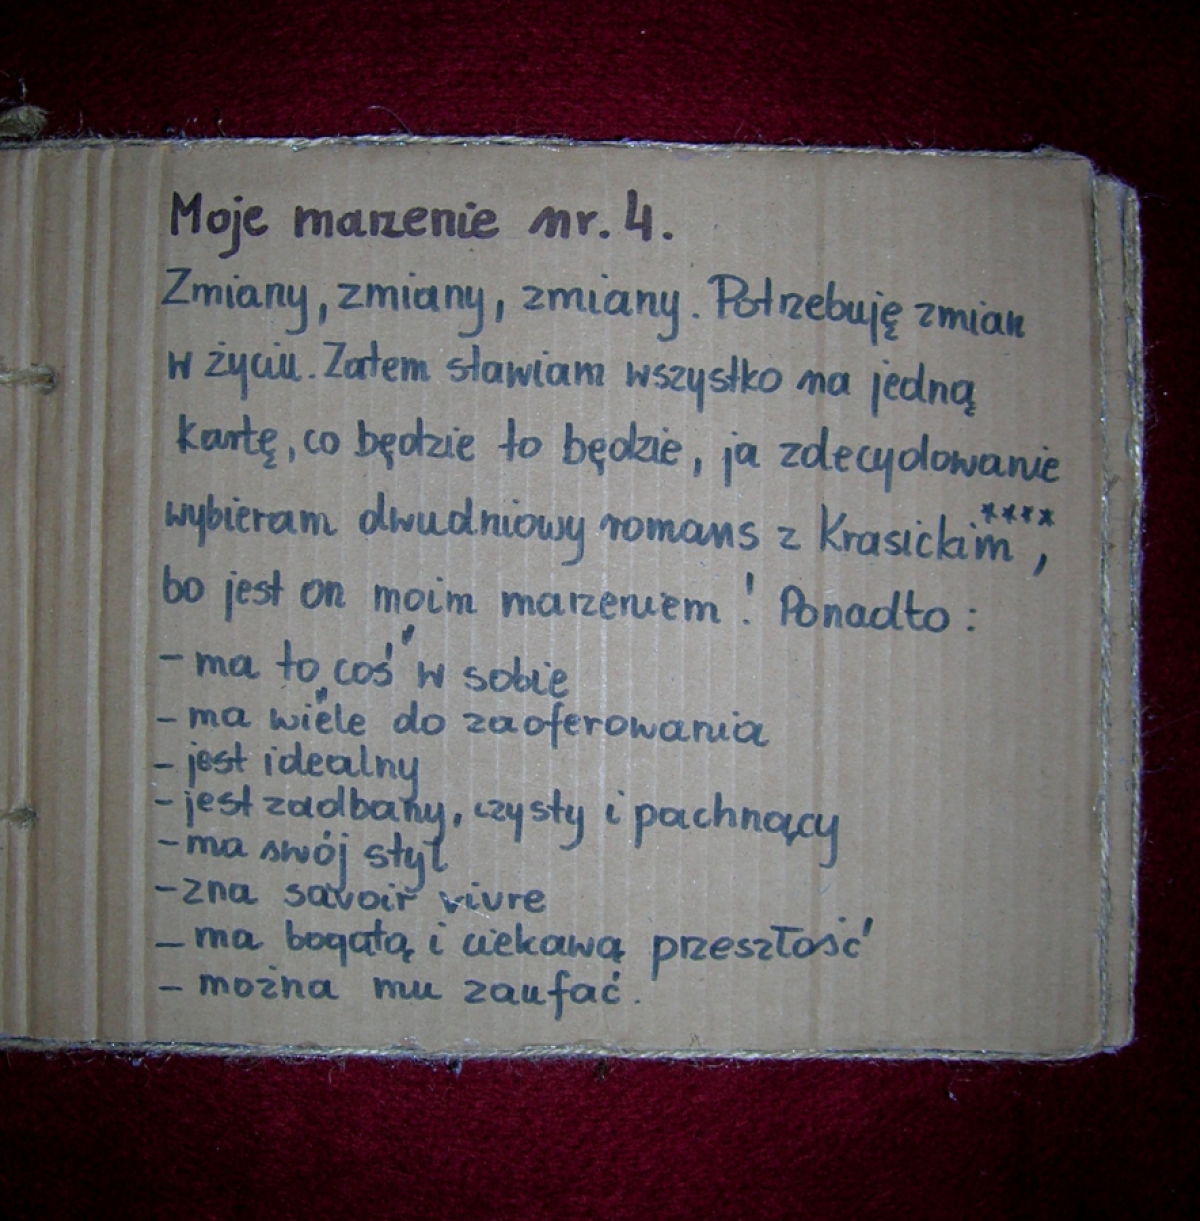 Moje marzenie nr. 4.
Zmiany, zmiany, zmiany. Potrzebuję zmian
w życiu. Zatem stawiam wszystko na jedną
kartę, co będzie to będzie, ja zdecydowanie
wybieram dwudniowy romans z Krasickim****,
bo jest on moim marzeniem! Ponadto:
- ma to "coś" w sobie
- ma wiele do zaoferowania
- jest idealny
- jest zadbany, czysty i pachnący
- ma swój styl
- zna savoir vivre
- ma bogatą i ciekawą przeszłość
- można mu zaufać.